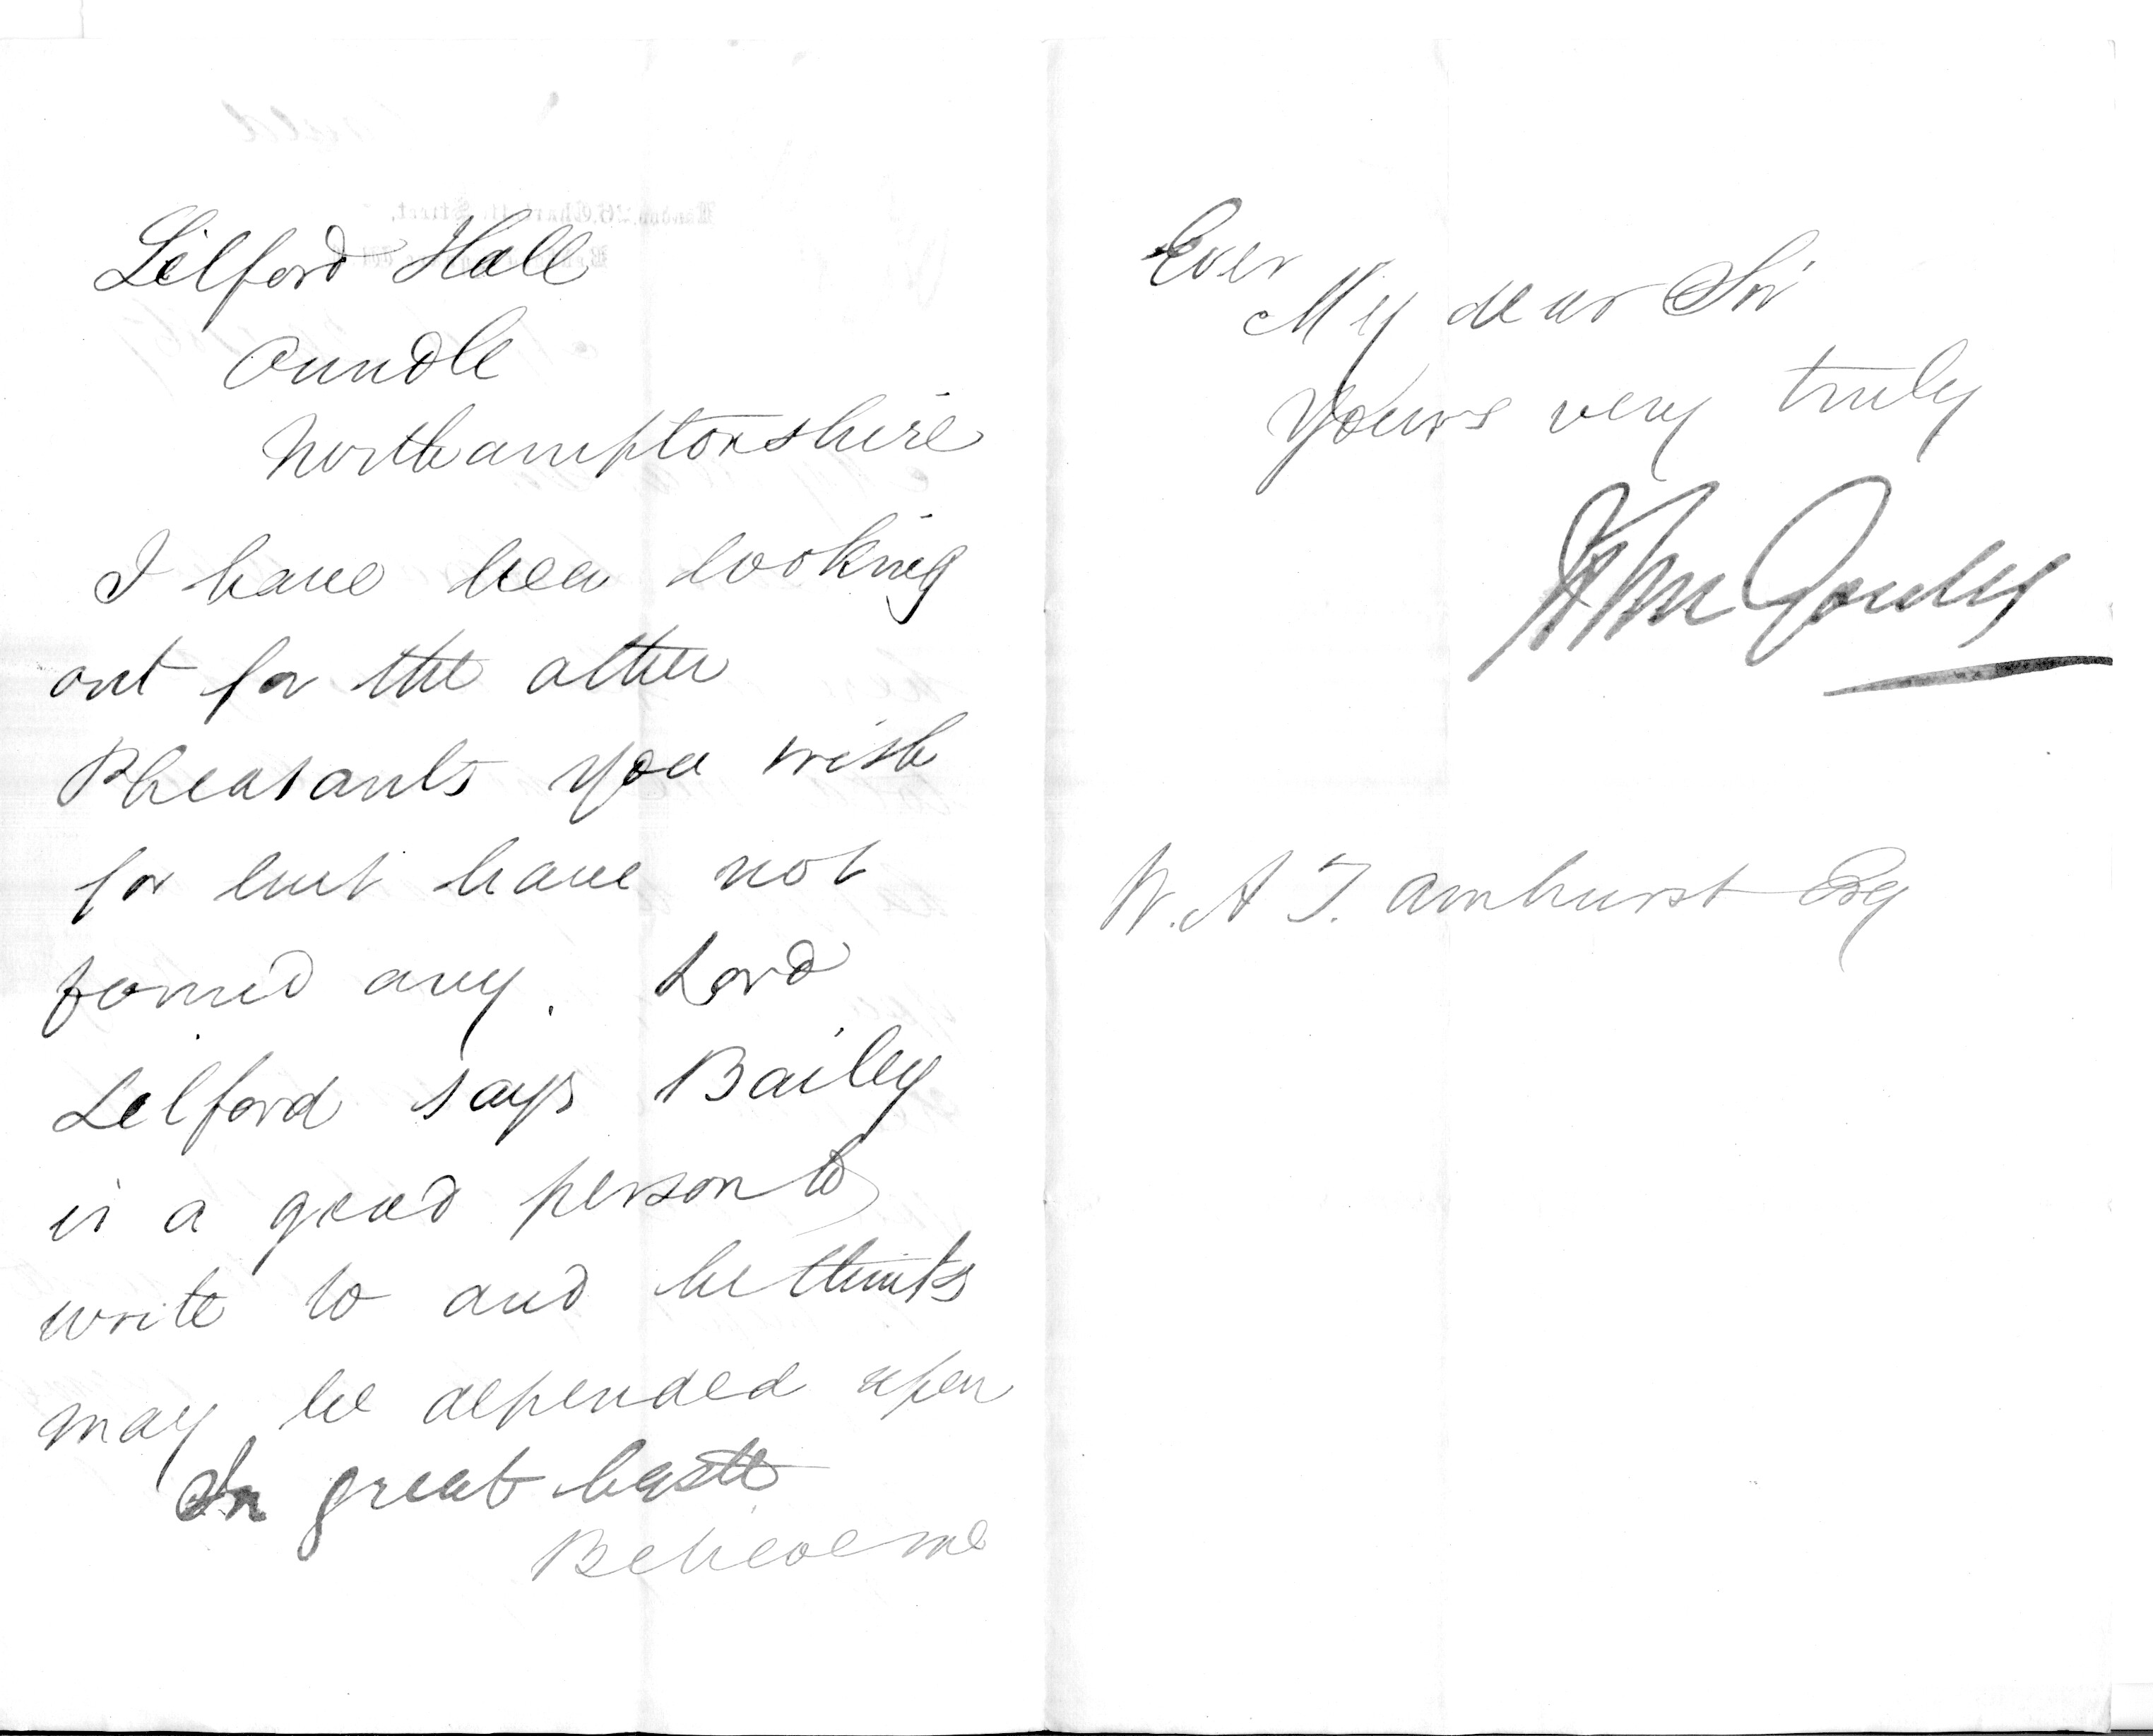 Lilford Hall
Oundle
Northamptonshire
I have been looking
out for the other
Pheasants you wish
for but have not
found any. Lord
Lilford says Bailey
is a good person to
write to and he thinks
may be depended upon
In great haste
Believe me
Ever
My dear Sir
Yours very truly
John Gould
W. A T. Amhurst Esq